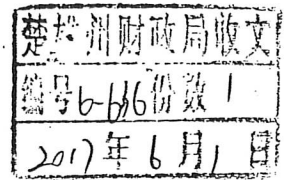 楚雄州财政局收文
编号6-636份数1
2017年6月1日